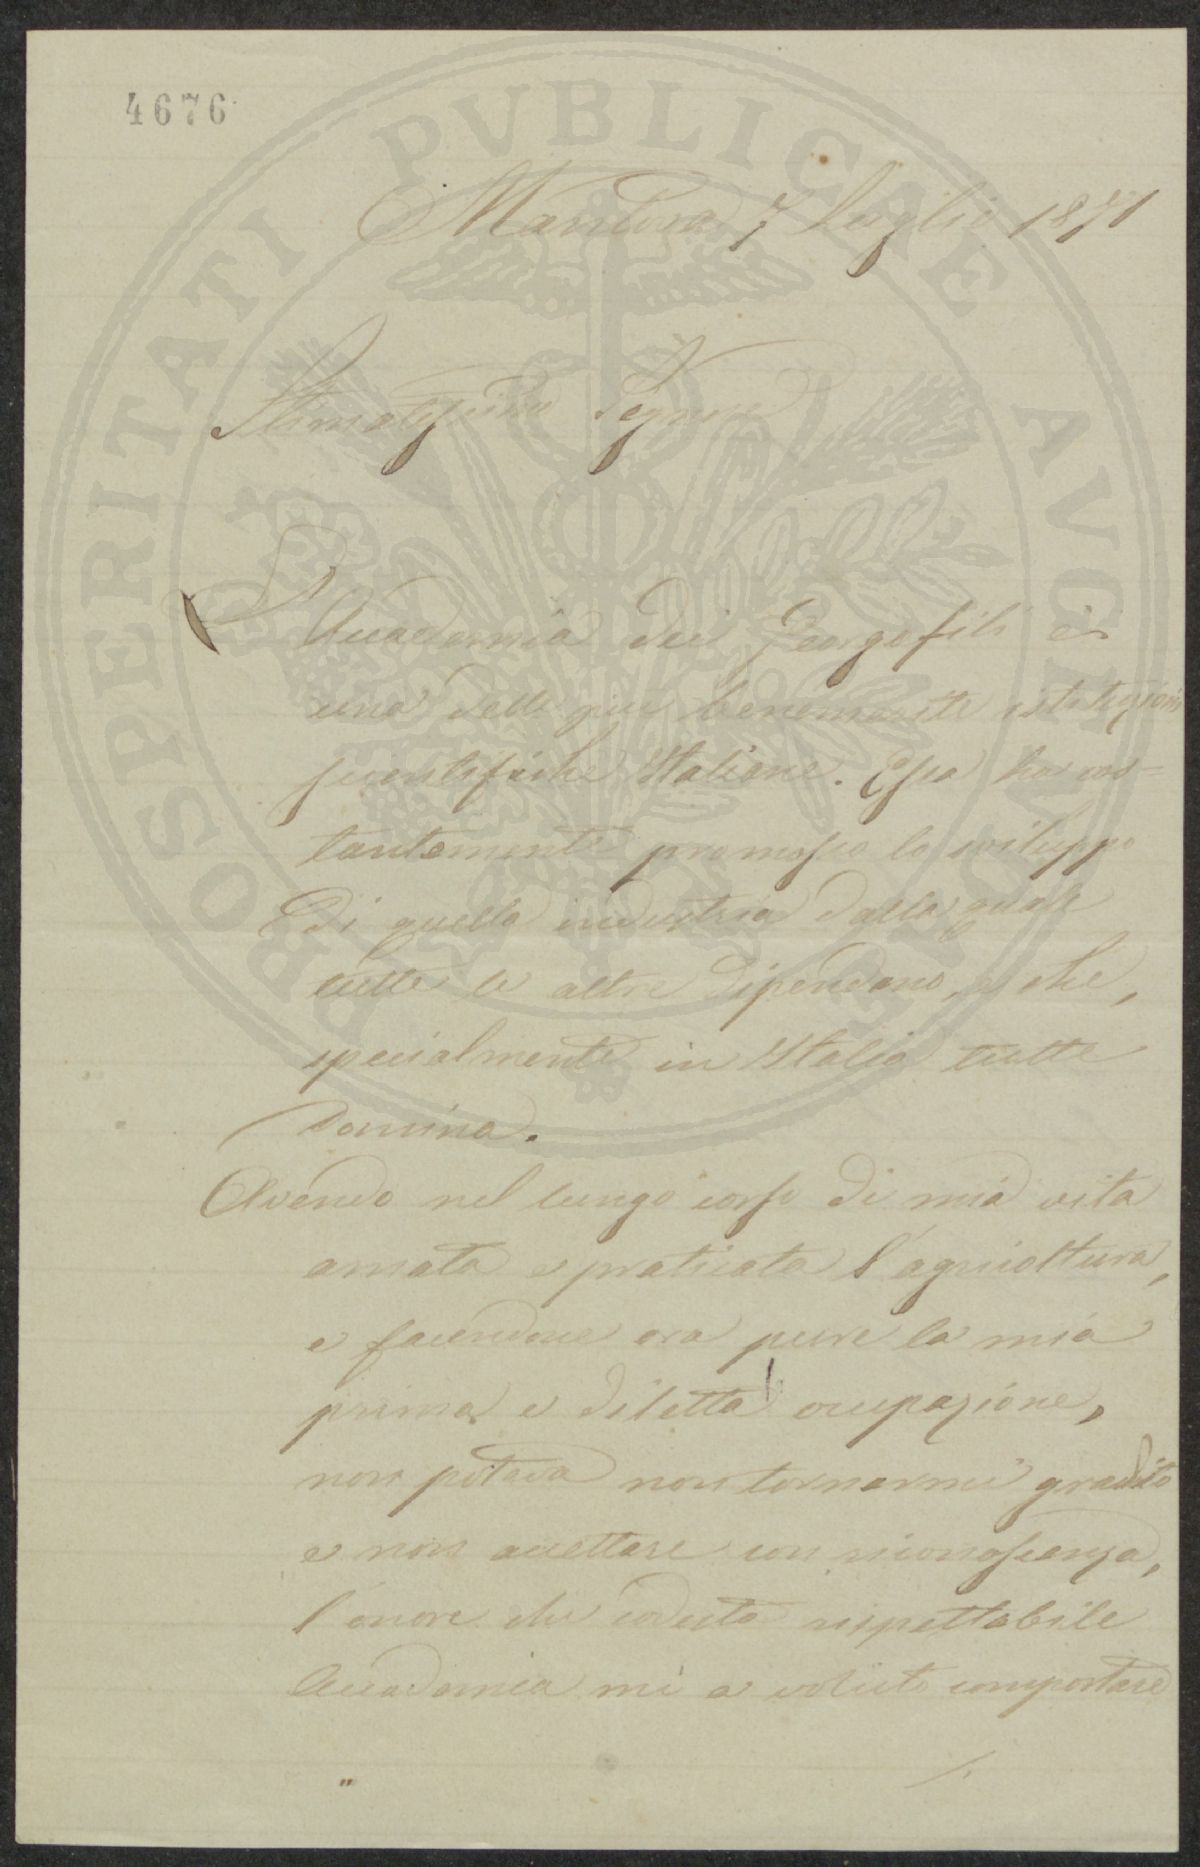 4676
PROSPERITATI PVBLICAE AVGENDAE
Mantova 7 Luglio 1871
Stimatissimo Signore
L'Accademia dei Georgofili è
una delle più benemerite istituzioni
scientifiche Italiane. Essa ha cos=
tantemente promosso lo sviluppo
di quella industria dalla quale
tutte le altre dipendono, e che,
specialmente in Italia tutte
domina.
Avendo nel lungo corso di mia vita
amata e praticata l'agricoltura,
e facendone ora pure la mia
prima e diletta occupazione,
non poteva non tornarmi gradito
e non accettare con riconoscenza,
l'onore che codesta rispettabile
Accademia mi a voluto compartire